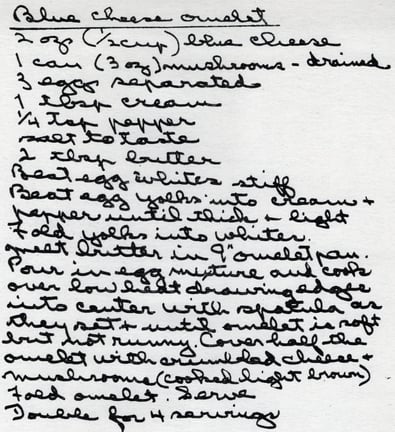 Blue cheese omelet
2 ozs (1/2 cup) blue cheese
1 can (3 oz) mushrooms - drained
3 eggs separated
1 tbsp cream
1/4 tsp pepper
salt to taste
2 tbsp butter
Beat egg whites stiff
Beat egg yolks into cream +
pepper until thick + light
Fold yolks into whites.
melt butter in 9" omelet pan.
Pour in egg mixture and cook
over low heat drawing edges
into center with spatula as
they set + until omelet is soft
but not runny. Cover half the
omelet with crumbled cheese +
mushrooms (cooked light brown)
Fold omelet. Serve
Double for 4 servings